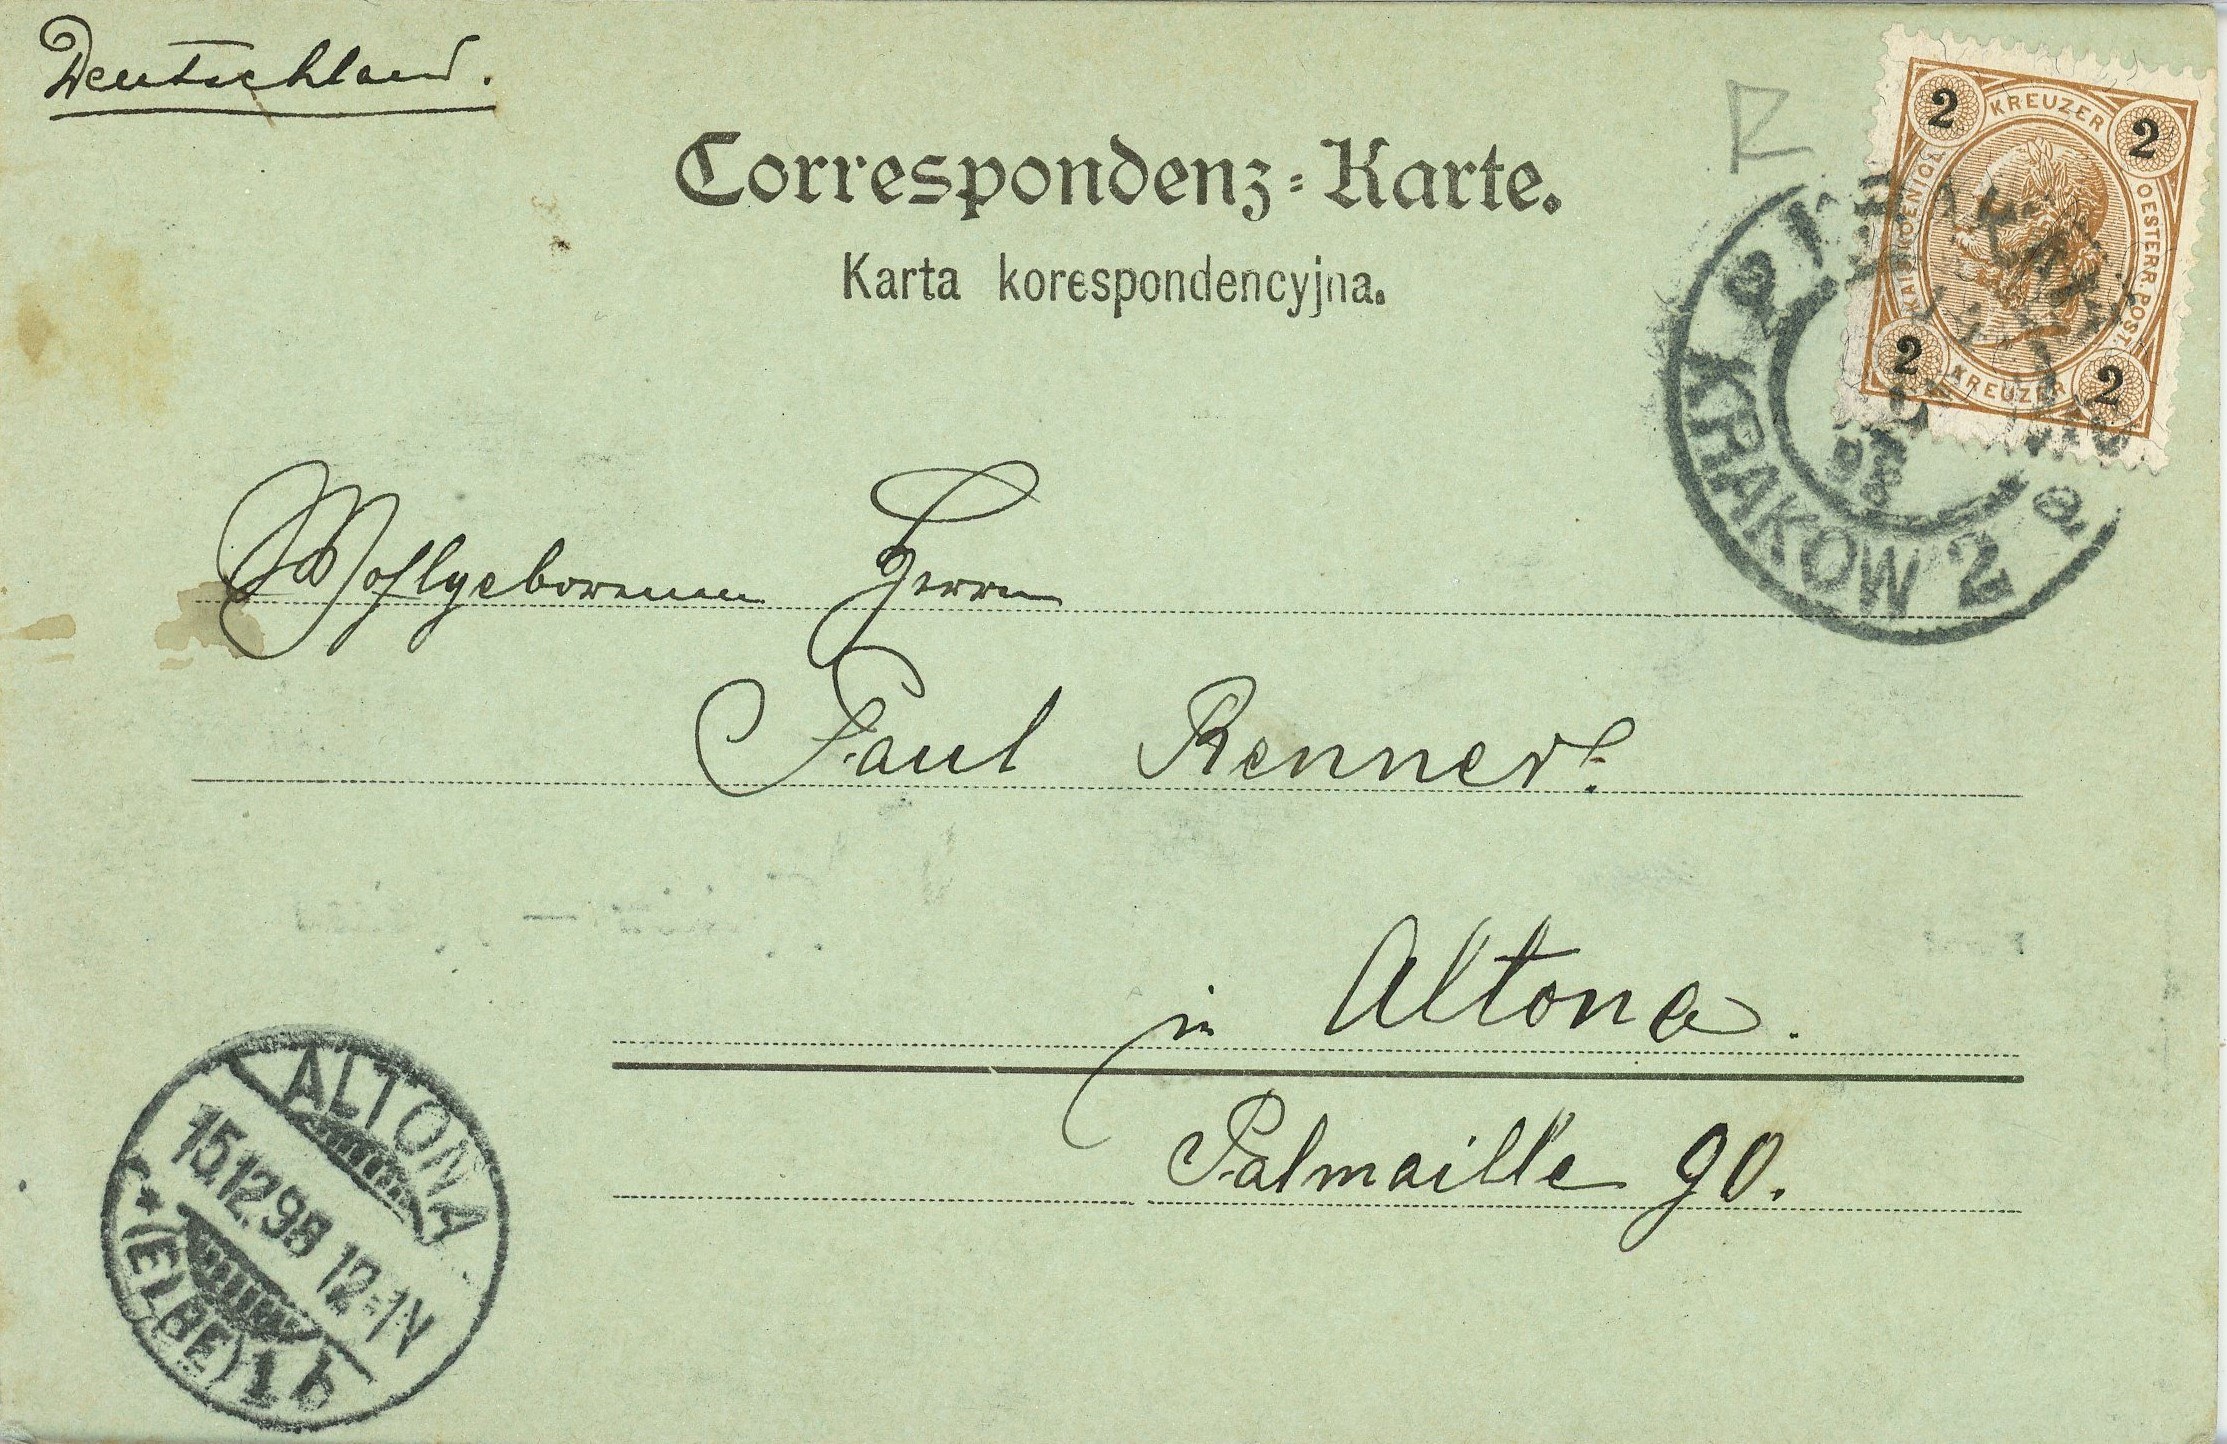 Deutschland.
Correspondenz-Karte.
Karta korespondencyjna.
2 KREUZER 2
KAIS. KOENIGL. OESTERR. POST.
2 KREUZER 2
KRAKOW 2
98
a
Wohlgeborenen Herrn
Paul Renner.
in Altona.
Palmaille 90.
ALTONA
15.12.98 12-1N
* (ELBE) 1 b